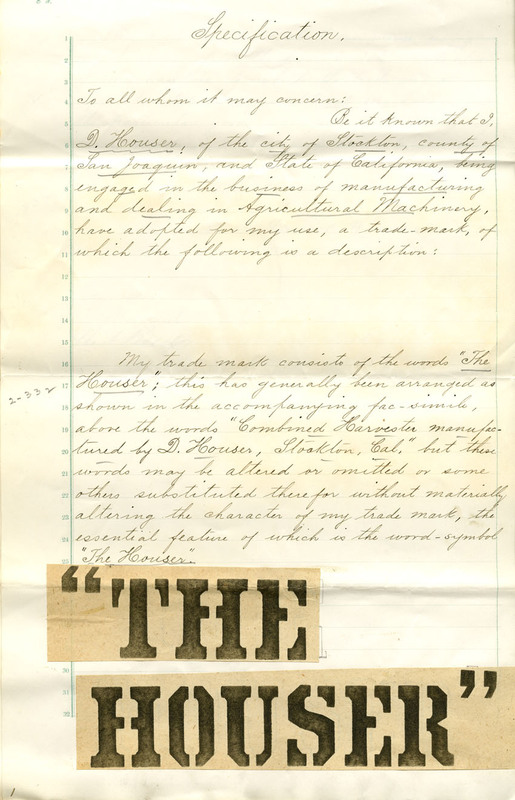 Specification.
To all whom it may concern:
Be it known that I,
D. Houser, of the city of Stockton, county of
San Joaquin, and State of California, being
engaged in the business of manufacturing
and dealing in Agricultural Machinery,
have adopted for my use, a trade-mark, of
which the following is a description:
My trade mark consists of the words "The
Houser"; this has generally been arranged as
shown in the accompanying fac-simile,
above the words "Combined Harvester manufac-
tured by D. Houser, Stockton, Cal." but these
words may be altered or omitted or some
others substituted therefor without materially
altering the character of my trade mark, the
essential feature of which is the word-symbol
"The Houser".
2-332
1
2
3
4
5
6
7
8
9
10
11
12
13
14
15
16
17
18
19
20
21
22
23
24
25
30
31
32
"THE
HOUSER"
1